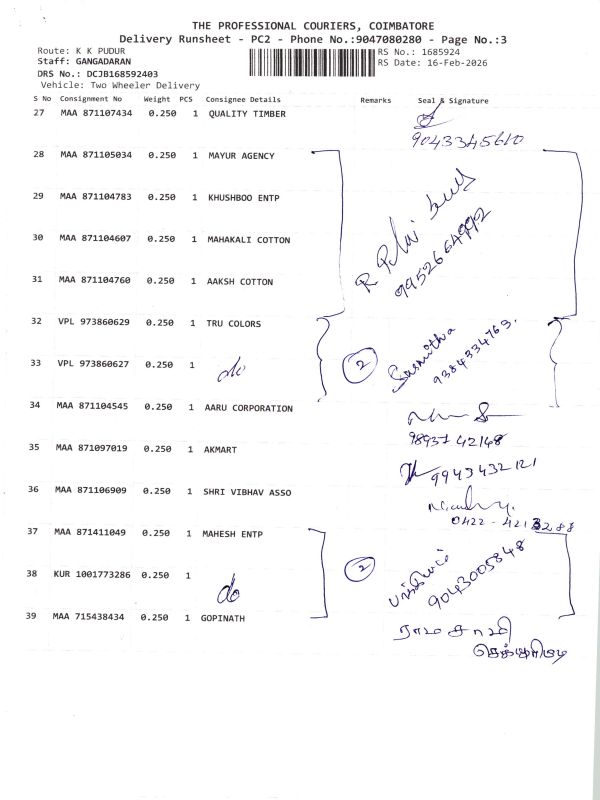 THE PROFESSIONAL COURIERS, COIMBATORE
Delivery Runsheet - PC2 - Phone No.:9047080280 - Page No.:3
Route: K K PUDUR
RS No.: 1685924
Staff: GANGADARAN
RS Date: 16-Feb-2026
DRS No.: DCJB168592403
Vehicle: Two Wheeler Delivery
S No Consignment No Weight PCS Consignee Details Remarks Seal & Signature
27 MAA 871107434 0.250 1 QUALITY TIMBER
9043345610
28 MAA 871105034 0.250 1 MAYUR AGENCY
29 MAA 871104783 0.250 1 KHUSHBOO ENTP
30 MAA 871104607 0.250 1 MAHAKALI COTTON
9952664992
31 MAA 871104760 0.250 1 AAKSH COTTON
32 VPL 973860629 0.250 1 TRU COLORS
33 VPL 973860627 0.250 1 do 2 Susmitha
9384334763.
34 MAA 871104545 0.250 1 AARU CORPORATION
98937 42148
35 MAA 871097019 0.250 1 AKMART
9943432121
36 MAA 871106909 0.250 1 SHRI VIBHAV ASSO
0422 - 4213288
37 MAA 871411049 0.250 1 MAHESH ENTP
38 KUR 1001773286 0.250 1 do 2
9043005848
39 MAA 715438434 0.250 1 GOPINATH
ராமசாமி